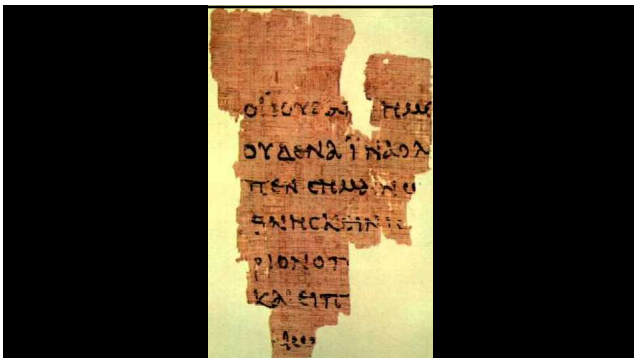 ΟΙ ΙΟΥΔΑΙ ΗΜΕ
ΟΥΔΕΝΑ ΙΝΑΟΛ
ΠΕΝ ΣΗΜΑΙΝΩ
ΘΝΗΣΚΕΙΝ ΙΣ
ΡΙΟΝ ΟΠ
ΚΑΙ ΕΙΠ